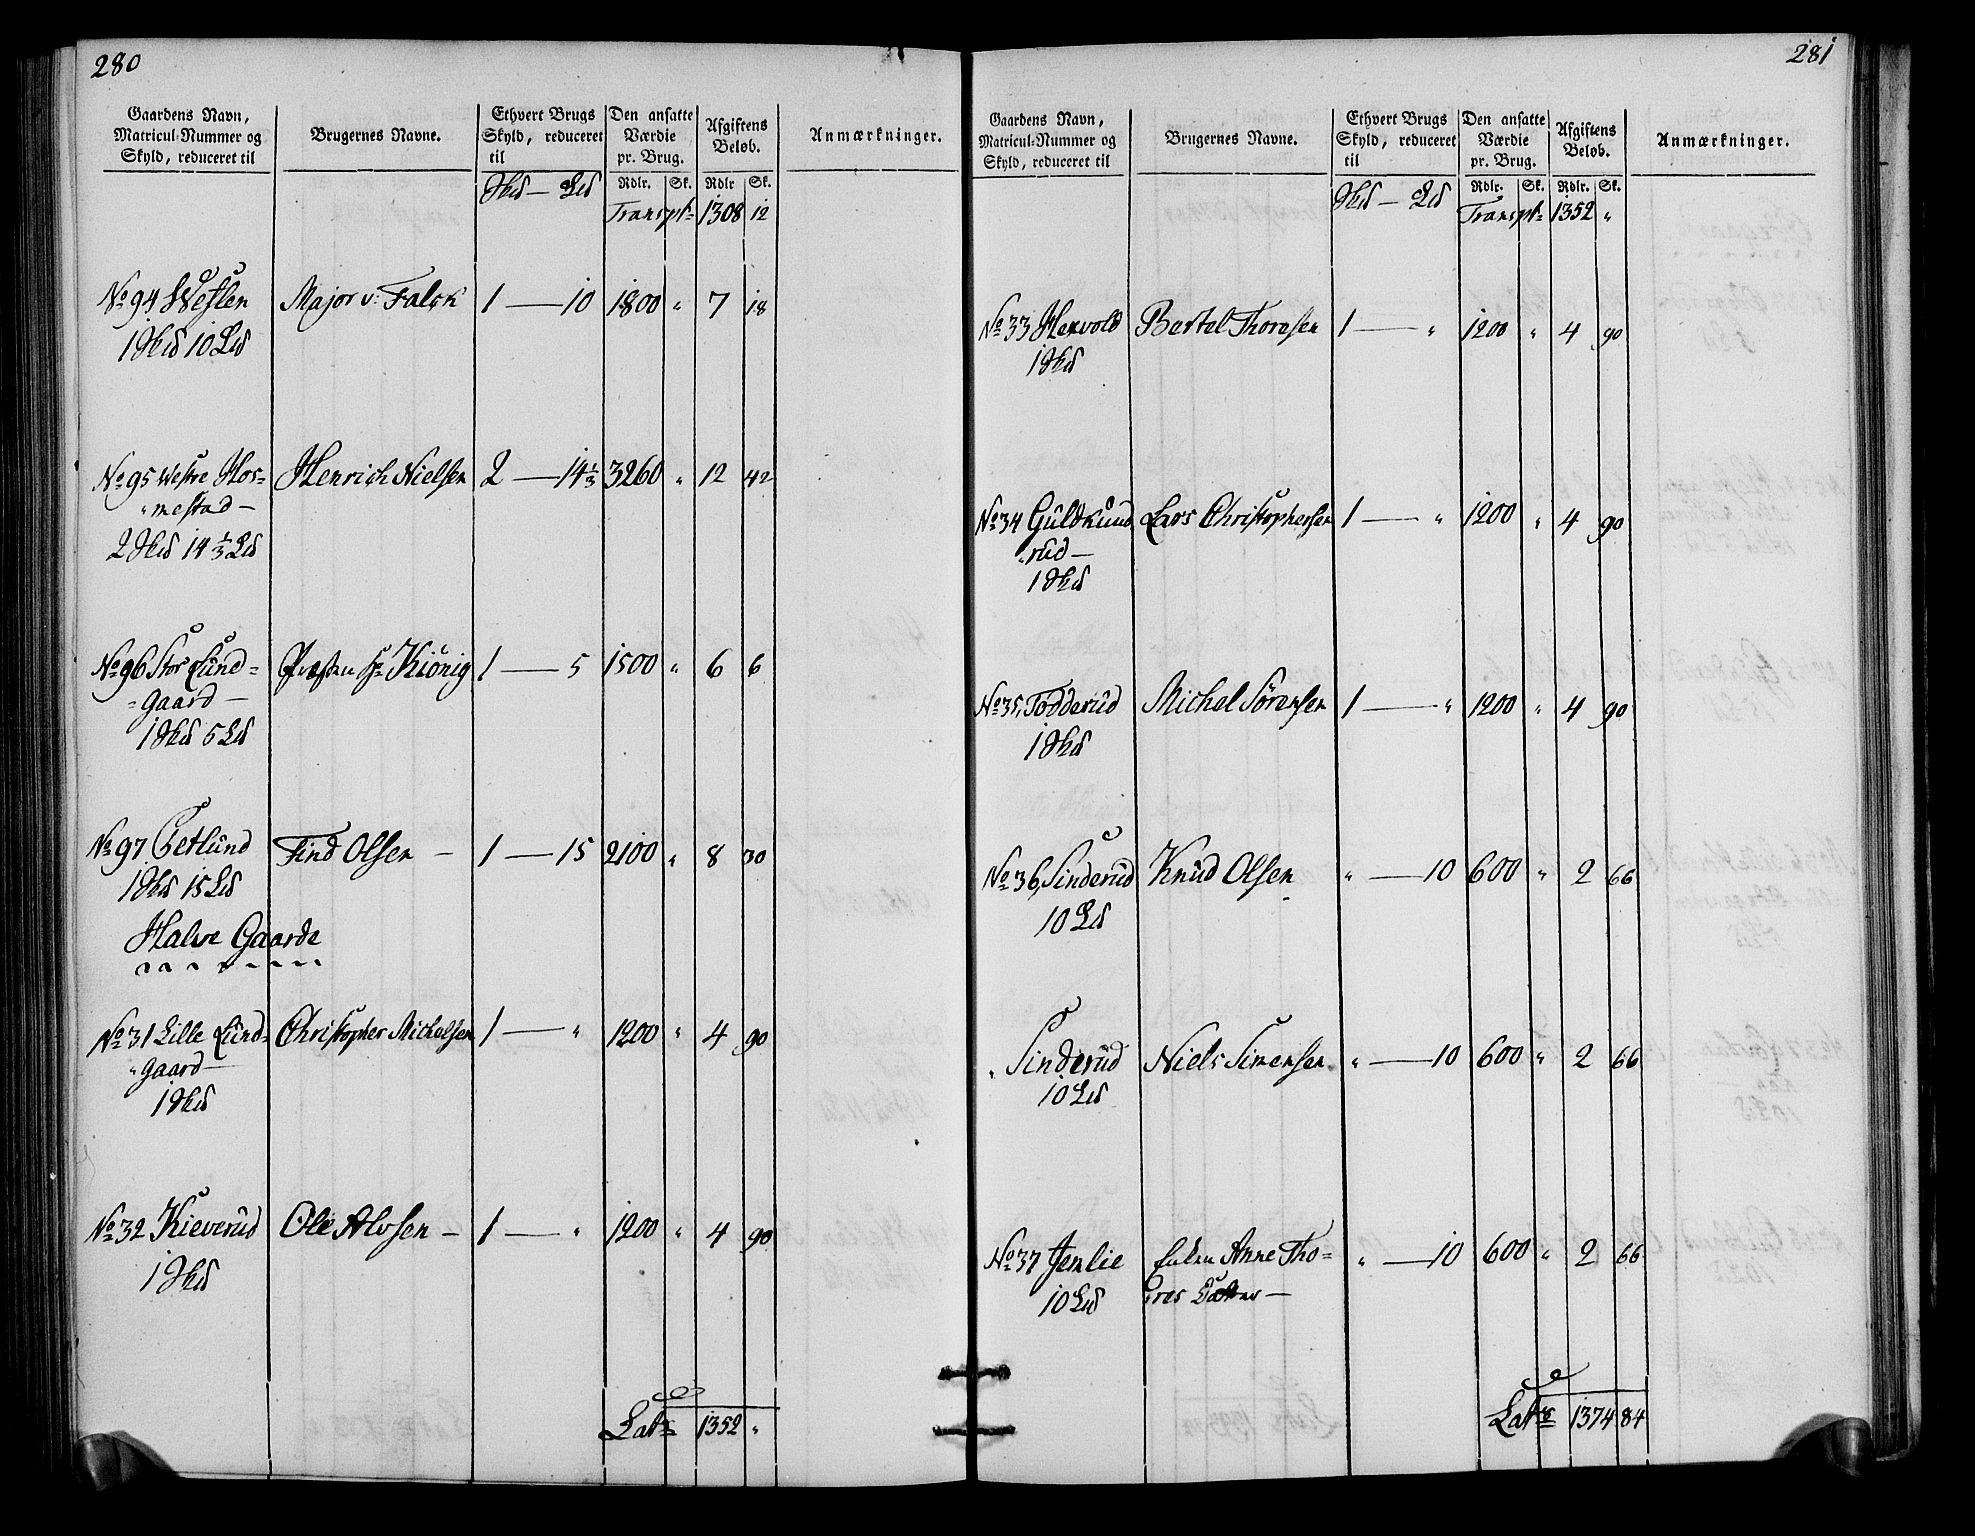 280
Gaardens Navn, Matricul-Nummer og Skyld, reduceret til | Brugernes Navne. | Ethvert Brugs Skyld, reduceret til | Den ansatte Værdie pr. Brug. | Afgiftens Beløb. | Anmærkninger.
Hud — Ld | Rdlr. | Sk. | Rdlr | Sk.
Transpt= 1308 12
No 94 Westlen Major v: Falsk 1 — 10 1800 „ 7 18
1 Hud 10 Ld
No 95 Westre Hos= Henrich Nielsen 2 — 14⅓ 3260 „ 12 42
„mestad —
2 Hud 14⅓ Ld
No 96 Stor Lund= Præsten Hr Kiönig 1 — 5 1500 „ 6 6
=gaard —
1 Hud 5 Ld
No 97 Getlund Find Olsen — 1 — 15 2100 „ 8 30
1 Hud 15 Ld
Halve Gaarde
No 31 Lille Lund= Christopher Michelsen 1 — „ 1200 „ 4 90
„gaard —
1 Hud
No 32 Kieverud Ole Alvsen — 1 — „ 1200 „ 4 90
1 Hud
Lats 1352 „
281
Gaardens Navn, Matricul-Nummer og Skyld, reduceret til | Brugernes Navne. | Ethvert Brugs Skyld, reduceret til | Den ansatte Værdie pr. Brug. | Afgiftens Beløb. | Anmærkninger.
Hud — Ld | Rdlr. | Sk. | Rdlr. | Sk.
Transpt= 1352 „
No 33 Hexvold Bertel Thoresen 1 — „ 1200 „ 4 90
1 Hud
No 34 Guldkund Lars Christophersen 1 — „ 1200 „ 4 90
„rud —
1 Hud
No 35, Tödderud Michel Sörensen 1 — „ 1200 „ 4 90
1 Hud
No 36, Sinderud Knud Olsen „ — 10 600 „ 2 66
10 Ld
„ Sinderud Niels Simensen „ — 10 600 „ 2 66
10 Ld
No 37 Jemlie Enken Anne Tho= „ — 10 600 „ 2 66
10 Ld „res Datter —
Lats 1374 84